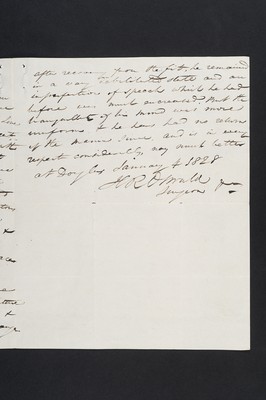 after recovery from the fit, he remained
in a very debilitated state and an
imperfection of speech which he had
before was much increased But the
tranquillity of his mind was more
uniform & he has had no return
of the mania since and is in every
respect considerably, very much better
at Douglas January 4 1828
H R Oswald
Surgeon